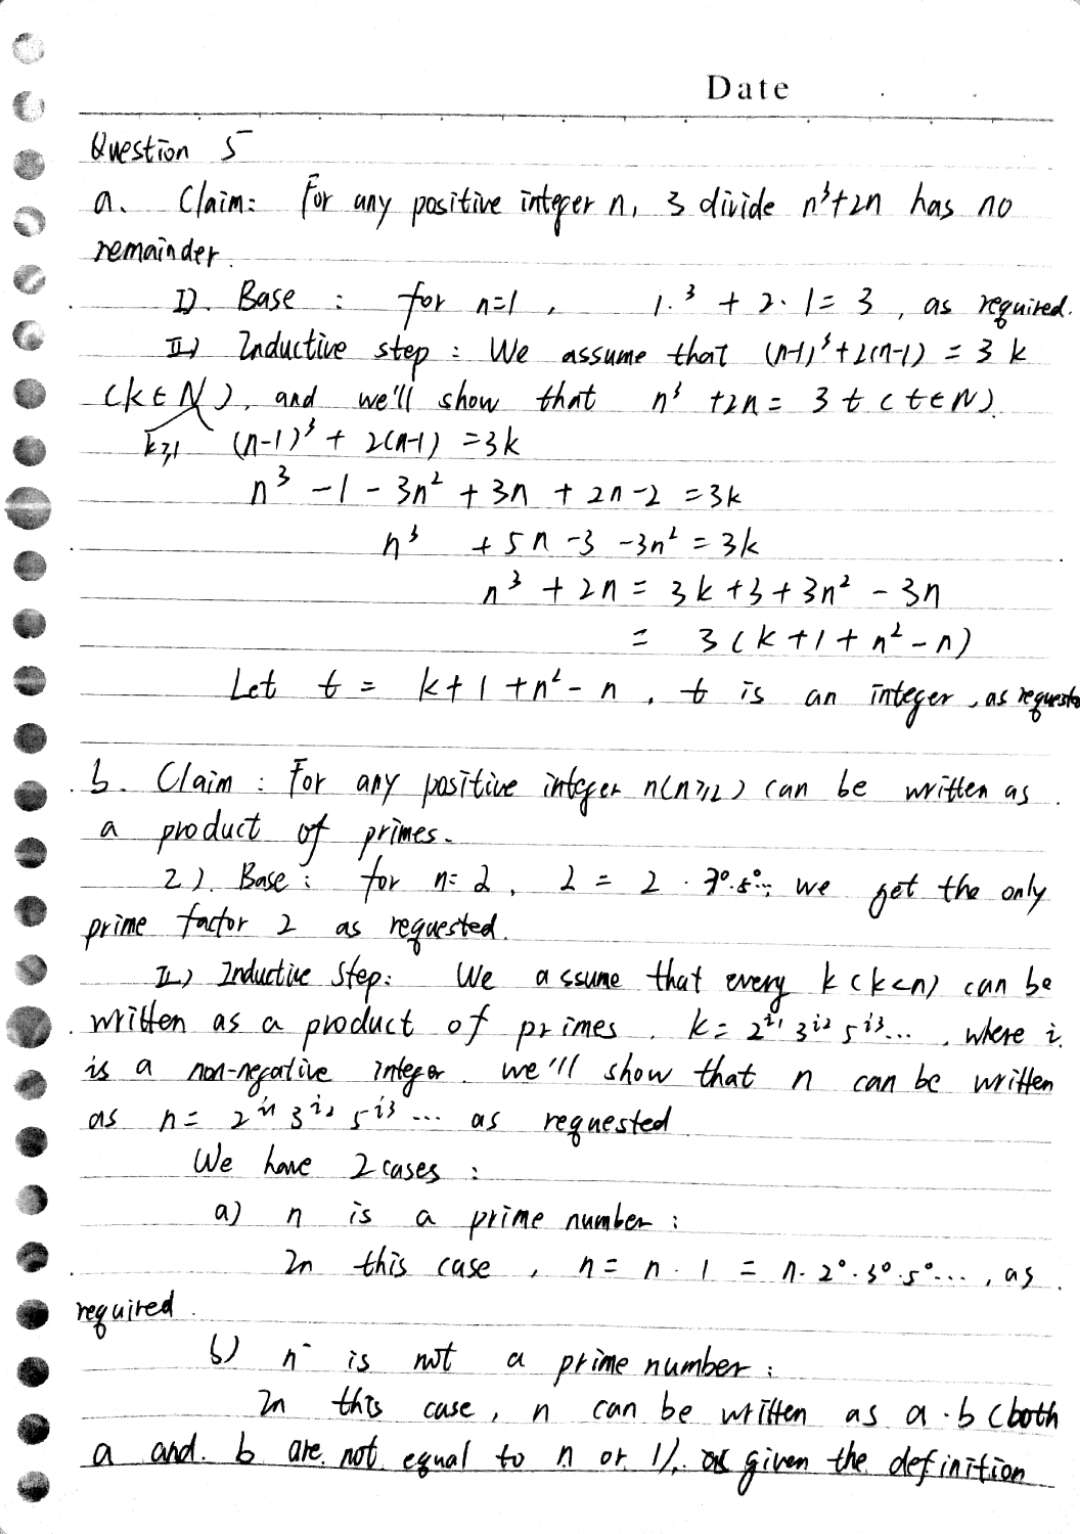 Date
Question 5
a. Claim: For any positive integer n, 3 divide n³+2n has no
remainder.
I). Base : for n=1, 1.³ + 2·1= 3, as required.
II) Inductive step : We assume that (n-1)³+2(n-1) = 3k
(k∈N), and we'll show that n³ +2n = 3t (t∈N).
k≥1 (n-1)³ + 2(n-1) =3k
n³ -1 - 3n² + 3n + 2n -2 =3k
n³ +5n -3 -3n² = 3k
n³ + 2n = 3k+3+3n² - 3n
= 3(k+1+n²-n)
Let t = k+1+n²-n, t is an integer, as requeste
b. Claim : For any positive integer n(n≥2) can be written as
a product of primes.
2). Base : for n=2, 2 = 2 · 3⁰·5⁰... we get the only
prime factor 2 as requested.
II) Inductive Step: We assume that every k(k<n) can be
written as a product of primes. k= 2^i1 3^i2 5^i3..., where i
is a non-negative integer. we'll show that n can be written
as n= 2^i1 3^i2 5^i3 ... as requested
We have 2 cases :
a) n is a prime number :
In this case, n = n · 1 = n·2⁰·3⁰·5⁰..., as
required.
b) n is not a prime number :
In this case, n can be written as a·b (both
a and b are not equal to n or 1), given the definition